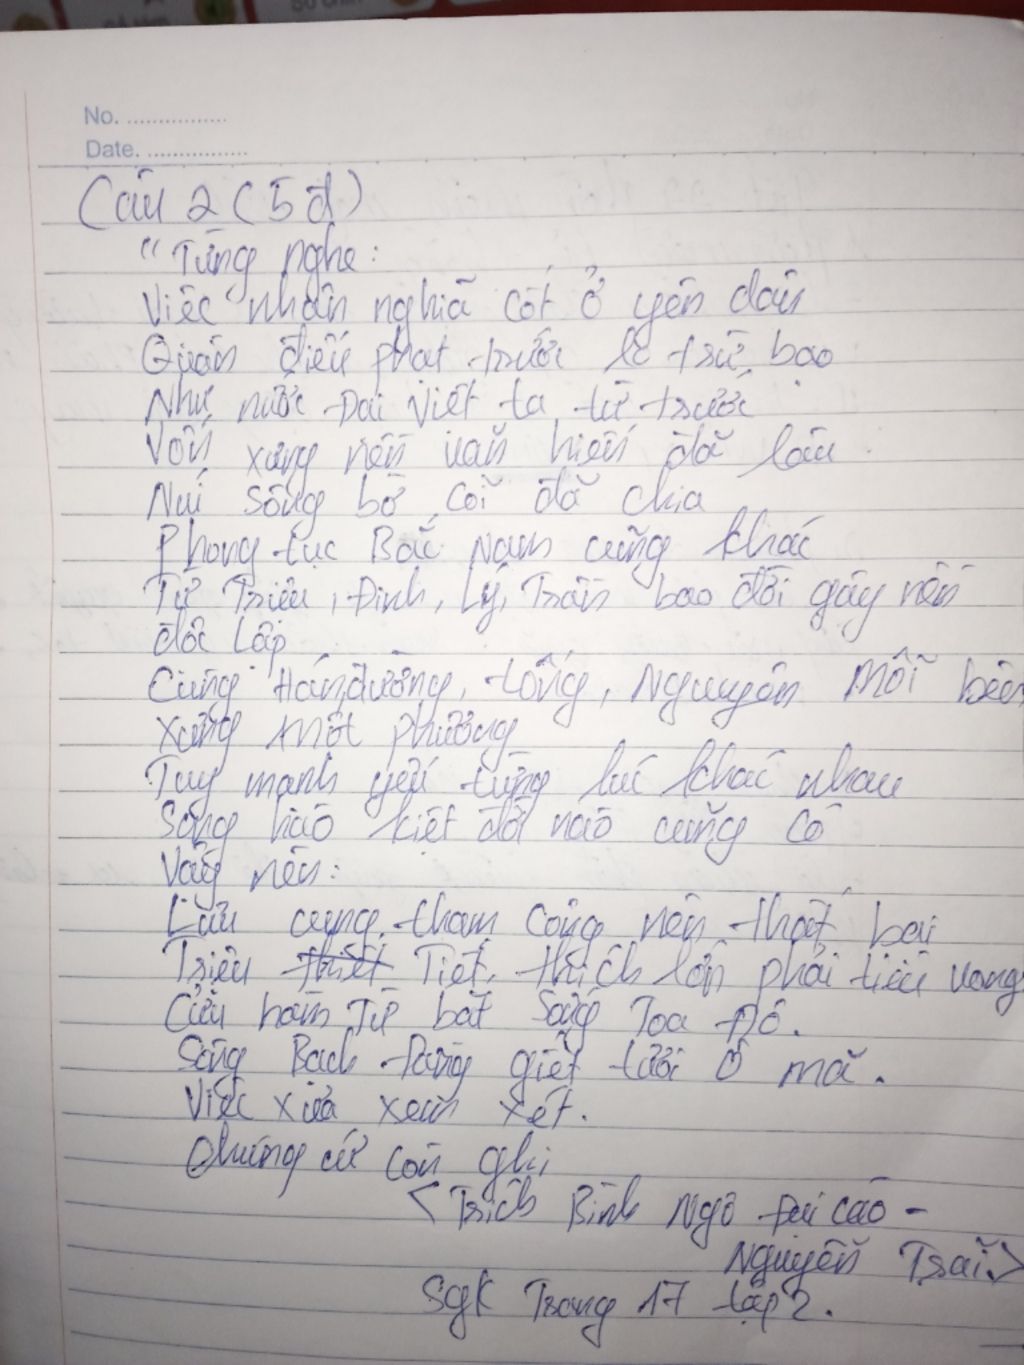 No. ................
Date. ................
Câu 2 (5 đ)
“Từng nghe:
Việc nhân nghĩa cốt ở yên dân
Quân điếu phạt trước lo trừ bạo
Như nước Đại Việt ta từ trước
Vốn xưng nền văn hiến đã lâu
Núi sông bờ cõi đã chia
Phong tục Bắc Nam cũng khác
Từ Triệu, Đinh, Lý, Trần bao đời gây nền
độc lập
Cùng Hán, đường, tống, Nguyên mỗi bên
xưng một phương
Tuy mạnh yếu từng lúc khác nhau
Song hào kiệt đời nào cũng có
Vậy nên:
Lưu cung tham công nên thất bại
Triệu thiết Tiết, thích lớn phải tiêu vong
Cửa hàm Tử bắt sống Toa Đô.
Sông Bạch Đằng giết tươi Ô mã.
Việc xưa xem xét.
Chứng cứ còn ghi
<Trích Bình Ngô Đại cáo -
Nguyễn Trãi>
Sgk Trang 17 tập 2.